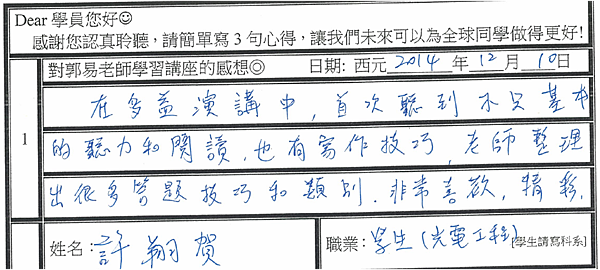 Dear 學員您好☺
感謝您認真聆聽，請簡單寫 3 句心得，讓我們未來可以為全球同學做得更好!
對郭易老師學習講座的感想◎ 日期: 西元 2014 年 12 月 10 日
1
在多益演講中，首次聽到不只基本
的聽力和閱讀，也有寫作技巧，老師整理
出很多答題技巧和類別，非常喜歡，精彩.
姓名：許翔賀 職業：學生(光電工程) [學生請寫科系]